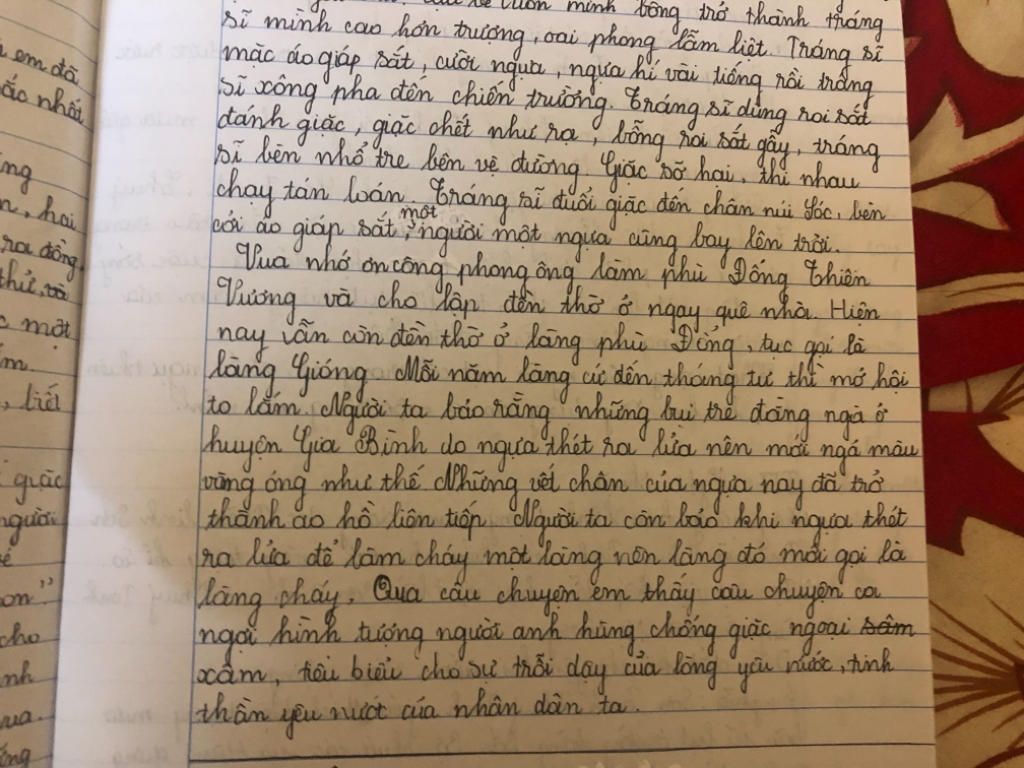 vươn mình bỗng trở thành tráng
sĩ mình cao hơn trượng, oai phong lẫm liệt. Tráng sĩ
mặc áo giáp sắt, cưỡi ngựa, ngựa hí vài tiếng rồi tráng
sĩ xông pha đến chiến trường. Tráng sĩ dùng roi sắt
đánh giặc, giặc chết như rạ, bỗng roi sắt gẫy, tráng
sĩ bèn nhổ tre bên vệ đường. Giặc sợ hai, thi nhau
chạy tán loán. Tráng sĩ đuổi giặc đến chân núi Sóc, bèn
cởi áo giáp sắt, một người một ngựa cũng bay lên trời.
Vua nhớ ơn công phong ông làm phù Đổng Thiên
Vương và cho lập đền thờ ở ngay quê nhà. Hiện
nay vẫn còn đền thờ ở làng phù Đổng, tục gọi là
làng Gióng. Mỗi năm làng cứ đến tháng tư thì mở hội
to lắm. Người ta bảo rằng những bụi tre đằng ngà ở
huyện Gia Bình do ngựa thét ra lửa nên mới ngả màu
vàng óng như thế. Những vết chân của ngựa nay đã trở
thành ao hồ liên tiếp. Người ta còn bảo khi ngựa thét
ra lửa để làm cháy một làng nên làng đó mới gọi là
làng cháy. Qua câu chuyện em thấy câu chuyện ca
ngợi hình tượng người anh hùng chống giặc ngoại sâm
xâm, tiêu biểu cho sự trỗi dạy của lòng yêu nước, tinh
thần yêu nước của nhân dân ta.
em đã
ắc nhất
n, hai
ra đồng
thử, và
một
biết
giặc
người
on."
cho